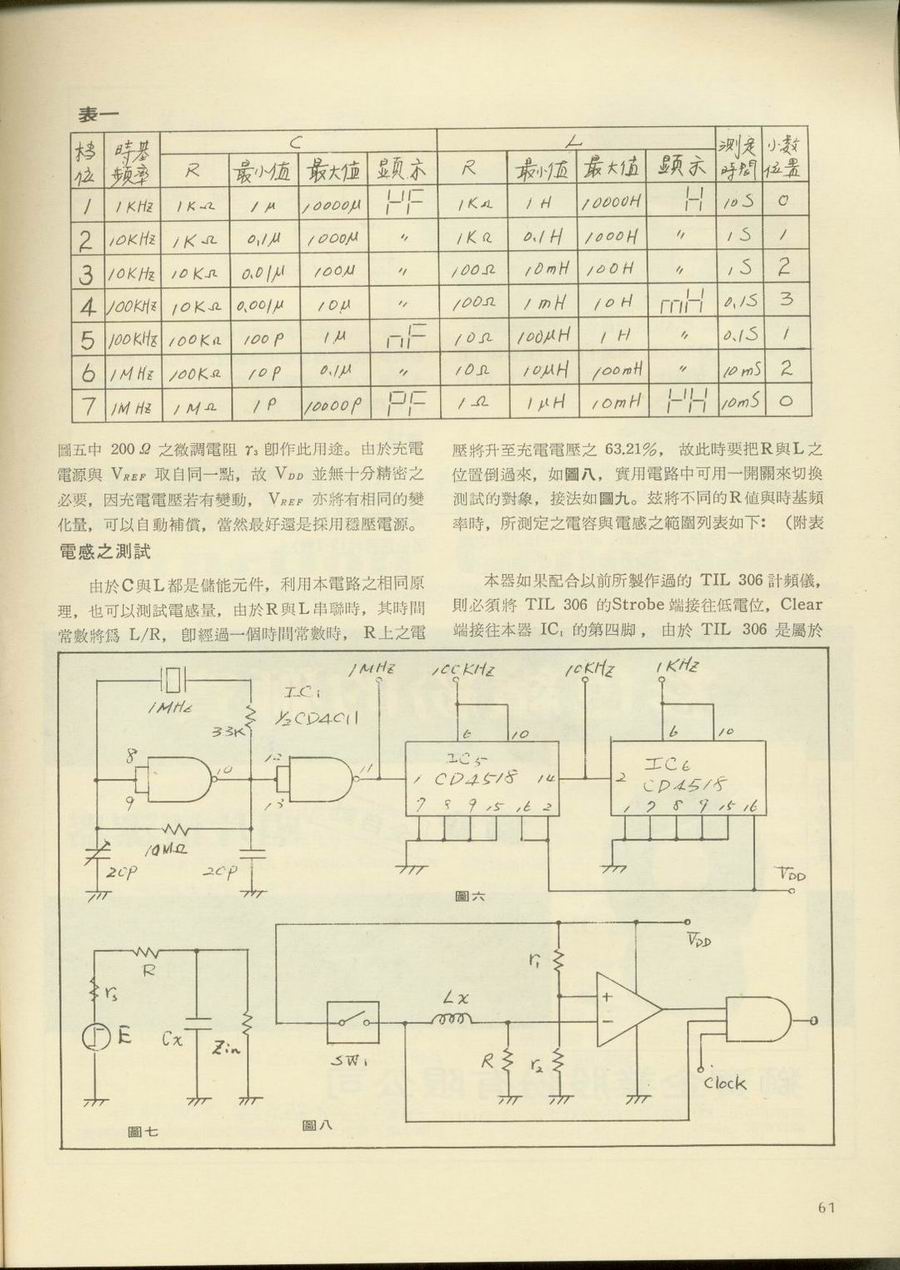 表一
档位 時基頻率 C L 測定時間 小数位置
R 最小值 最大值 顯示 R 最小值 最大值 顯示
1 1KHz 1KΩ 1μ 10000μ μF 1KΩ 1H 10000H H 10S 0
2 10KHz 1KΩ 0.1μ 1000μ 〃 1KΩ 0.1H 1000H 〃 1S 1
3 10KHz 10KΩ 0.01μ 100μ 〃 100Ω 10mH 100H 〃 1S 2
4 100KHz 10KΩ 0.001μ 10μ 〃 100Ω 1mH 10H mH 0.1S 3
5 100KHz 100KΩ 100P 1μ nF 10Ω 100μH 1H 〃 0.1S 1
6 1MHz 100KΩ 10P 0.1μ 〃 10Ω 10μH 100mH 〃 10mS 2
7 1MHz 1MΩ 1P 10000P PF 1Ω 1μH 10mH μH 10mS 0
圖五中 200Ω 之微調電阻 r₃ 卽作此用途。由於充電
電源與 VREF 取自同一點，故 VDD 並無十分精密之
必要，因充電電壓若有變動， VREF 亦將有相同的變
化量，可以自動補償，當然最好還是採用穩壓電源。
電感之測試
由於C與L都是儲能元件，利用本電路之相同原
理，也可以測試電感量，由於R與L串聯時，其時間
常數將爲 L/R， 卽經過一個時間常數時， R上之電
壓將升至充電電壓之 63.21%， 故此時要把R與L之
位置倒過來，如圖八，實用電路中可用一開關來切換
測試的對象，接法如圖九。玆將不同的R值與時基頻
率時，所測定之電容與電感之範圍列表如下：（附表
本器如果配合以前所製作過的 TIL 306計頻儀，
則必須將 TIL 306 的Strobe端接往低電位，Clear
端接往本器 IC₁ 的第四脚，由於 TIL 306 是屬於
1MHz
33K
IC₁
½CD4011
8
9
10
12
13
11
10MΩ
20P
20P
1MHz
100KHz
10KHz
1KHz
6 10
IC5
CD4518
1 14
7 8 9 15 16 2
6 10
IC6
CD4518
2
1 7 8 9 15 16
VDD
圖六
R
rs
E
Cx
Zin
圖七
SW₁
Lx
R
r₁
r₂
+
−
VDD
clock
圖八
61